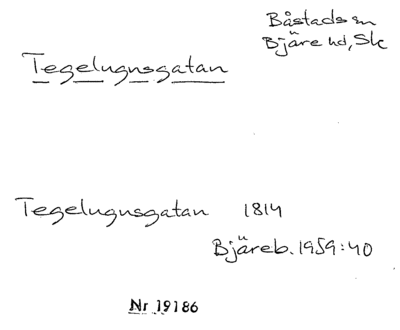 Båstads sn
Bjäre hd, Sk
Tegelugnsgatan
Tegelugnsgatan 1814
Bjäreb. 1959:40
Nr 19186